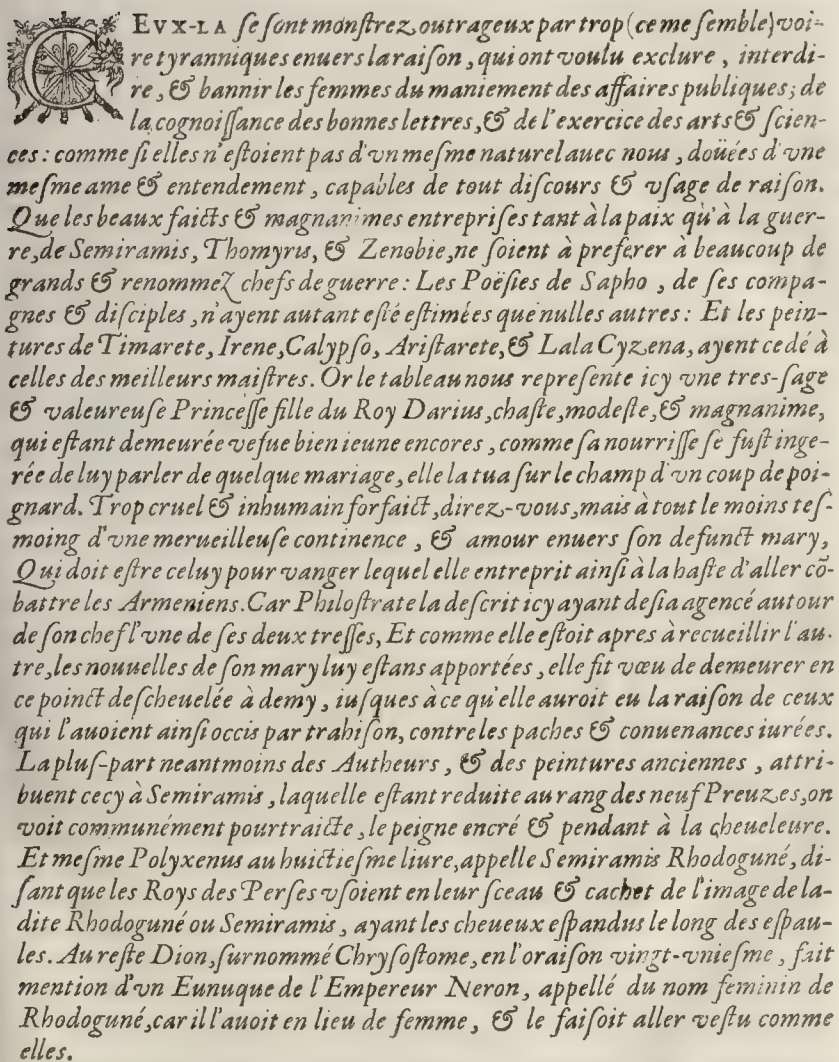 CEVX-LA ſe ſont monſtrez outrageux par trop (ce me ſemble) voi-
re tyranniques enuers la raiſon, qui ont voulu exclure, interdi-
re, & bannir les femmes du maniement des affaires publiques; de
la cognoiſſance des bonnes lettres, & de l'exercice des arts & ſcien-
ces: comme ſi elles n'eſtoient pas d'vn meſme naturel auec nous, doüées d'vne
meſme ame & entendement, capables de tout diſcours & vſage de raiſon.
Que les beaux faicts & magnanimes entrepriſes tant à la paix qu'à la guer-
re, de Semiramis, Thomyris, & Zenobie, ne ſoient à preferer à beaucoup de
grands & renommez chefs de guerre: Les Poëſies de Sapho, de ſes compa-
gnes & diſciples, n'ayent autant eſté eſtimées que nulles autres: Et les pein-
tures de Timarete, Irene, Calypſo, Ariſtarete, & Lala Cyzena, ayent cedé à
celles des meilleurs maiſtres. Or le tableau nous repreſente icy vne tres-ſage
& valeureuſe Princeſſe fille du Roy Darius, chaſte, modeſte, & magnanime,
qui eſtant demeurée vefue bien ieune encores, comme ſa nourriſſe ſe fuſt inge-
rée de luy parler de quelque mariage, elle la tua ſur le champ d'vn coup de poi-
gnard. Trop cruel & inhumain forfaict, direz-vous, mais à tout le moins teſ-
moing d'vne merueilleuſe continence, & amour enuers ſon defunct mary,
Qui doit eſtre celuy pour vanger lequel elle entreprit ainſi à la haſte d'aller cõ-
battre les Armeniens. Car Philoſtrate la deſcrit icy ayant deſia agencé autour
de ſon chef l'vne de ſes deux treſſes, Et comme elle eſtoit apres à recueillir l'au-
tre, les nouuelles de ſon mary luy eſtans apportées, elle fit vœu de demeurer en
ce poinct deſcheuelée à demy, iuſques à ce qu'elle auroit eu la raiſon de ceux
qui l'auoient ainſi occis par trahiſon, contre les paches & conuenances iurées.
La pluſ-part neantmoins des Autheurs, & des peintures anciennes, attri-
buent cecy à Semiramis, laquelle eſtant reduite au rang des neuf Preuzes, on
voit communément pourtraicte, le peigne encré & pendant à la cheueleure.
Et meſme Polyxenus au huictieſme liure, appelle Semiramis Rhodoguné, di-
ſant que les Roys des Perſes vſoient en leur ſceau & cachet de l'image de la-
dite Rhodoguné ou Semiramis, ayant les cheueux eſpandus le long des eſpau-
les. Au reſte Dion, ſurnommé Chryſoſtome, en l'oraiſon vingt-vnieſme, fait
mention d'vn Eunuque de l'Empereur Neron, appellé du nom feminin de
Rhodoguné, car il l'auoit en lieu de femme, & le faiſoit aller veſtu comme
elles.